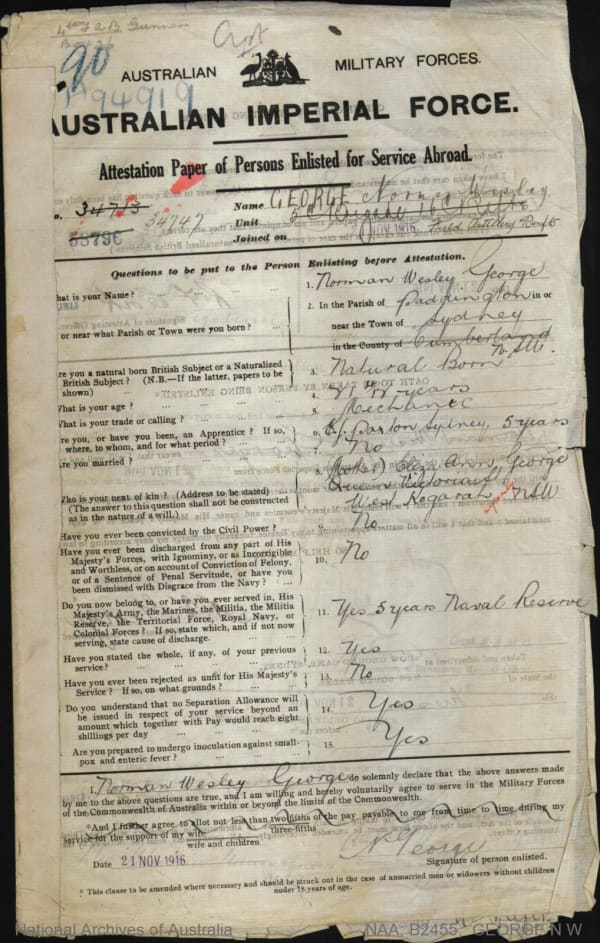 90
94919
AUSTRALIAN MILITARY FORCES.
AUSTRALIAN IMPERIAL FORCE.
Attestation Paper of Persons Enlisted for Service Abroad.
o. 34713 34747 Name GEORGE Norman Wesley
Unit
Joined on NOV 1916 Field Artillery Reinfts
Questions to be put to the Person Enlisting before Attestation.
hat is your Name? ... ... ... 1. Norman Wesley George
2. In the Parish of Paddington in or
or near what Parish or Town were you born? ... near the Town of Sydney
in the County of Cumberland
N.S.W.
re you a natural born British Subject or a Naturalized
British Subject? (N.B.—If the latter, papers to be
shown) ... 3. Natural Born
What is your age? ... 4. 21 years
What is your trade or calling? ... 5. Mechanic
re you, or have you been, an Apprentice? If so,
where, to whom, and for what period? ... 6. Sydney, 5 years
Are you married? ... 7. No
8. (Mother) Eliza Ann George
Who is your next of kin? (Address to be stated) ... Queen Victoria St
(The answer to this question shall not be construed West Kogarah NSW
as in the nature of a will.)
Have you ever been convicted by the Civil Power? ... 9. No
Have you ever been discharged from any part of His
Majesty's Forces, with Ignominy, or as Incorrigible
and Worthless, or on account of Conviction of Felony, 10. No
or of a Sentence of Penal Servitude, or have you
been dismissed with Disgrace from the Navy? ...
Do you now belong to, or have you ever served in, His
Majesty's Army, the Marines, the Militia, the Militia
Reserve, the Territorial Force, Royal Navy, or 11. Yes 5 years Naval Reserve
Colonial Forces? If so, state which, and if not now
serving, state cause of discharge.
Have you stated the whole, if any, of your previous 12. Yes
service? ... ... ... ...
Have you ever been rejected as unfit for His Majesty's 13. No
Service? If so, on what grounds? ...
Do you understand that no Separation Allowance will
be issued in respect of your service beyond an 14. Yes
amount which together with Pay would reach eight
shillings per day ... ... ...
Are you prepared to undergo inoculation against small- 15 Yes
pox and enteric fever? ... ...
I, Norman Wesley George do solemnly declare that the above answers made
by me to the above questions are true, and I am willing and hereby voluntarily agree to serve in the Military Forces
of the Commonwealth of Australia within or beyond the limits of the Commonwealth.
*And I further agree to allot not less than two-fifths of the pay payable to me from time to time during my
three-fifths
service for the support of my wife
wife and children
N George
Date 21 NOV 1916 Signature of person enlisted.
* This clause to be amended where necessary and should be struck out in the case of unmarried men or widowers without children
under 18 years of age.
National Archives of Australia NAA: B2455, GEORGE N W